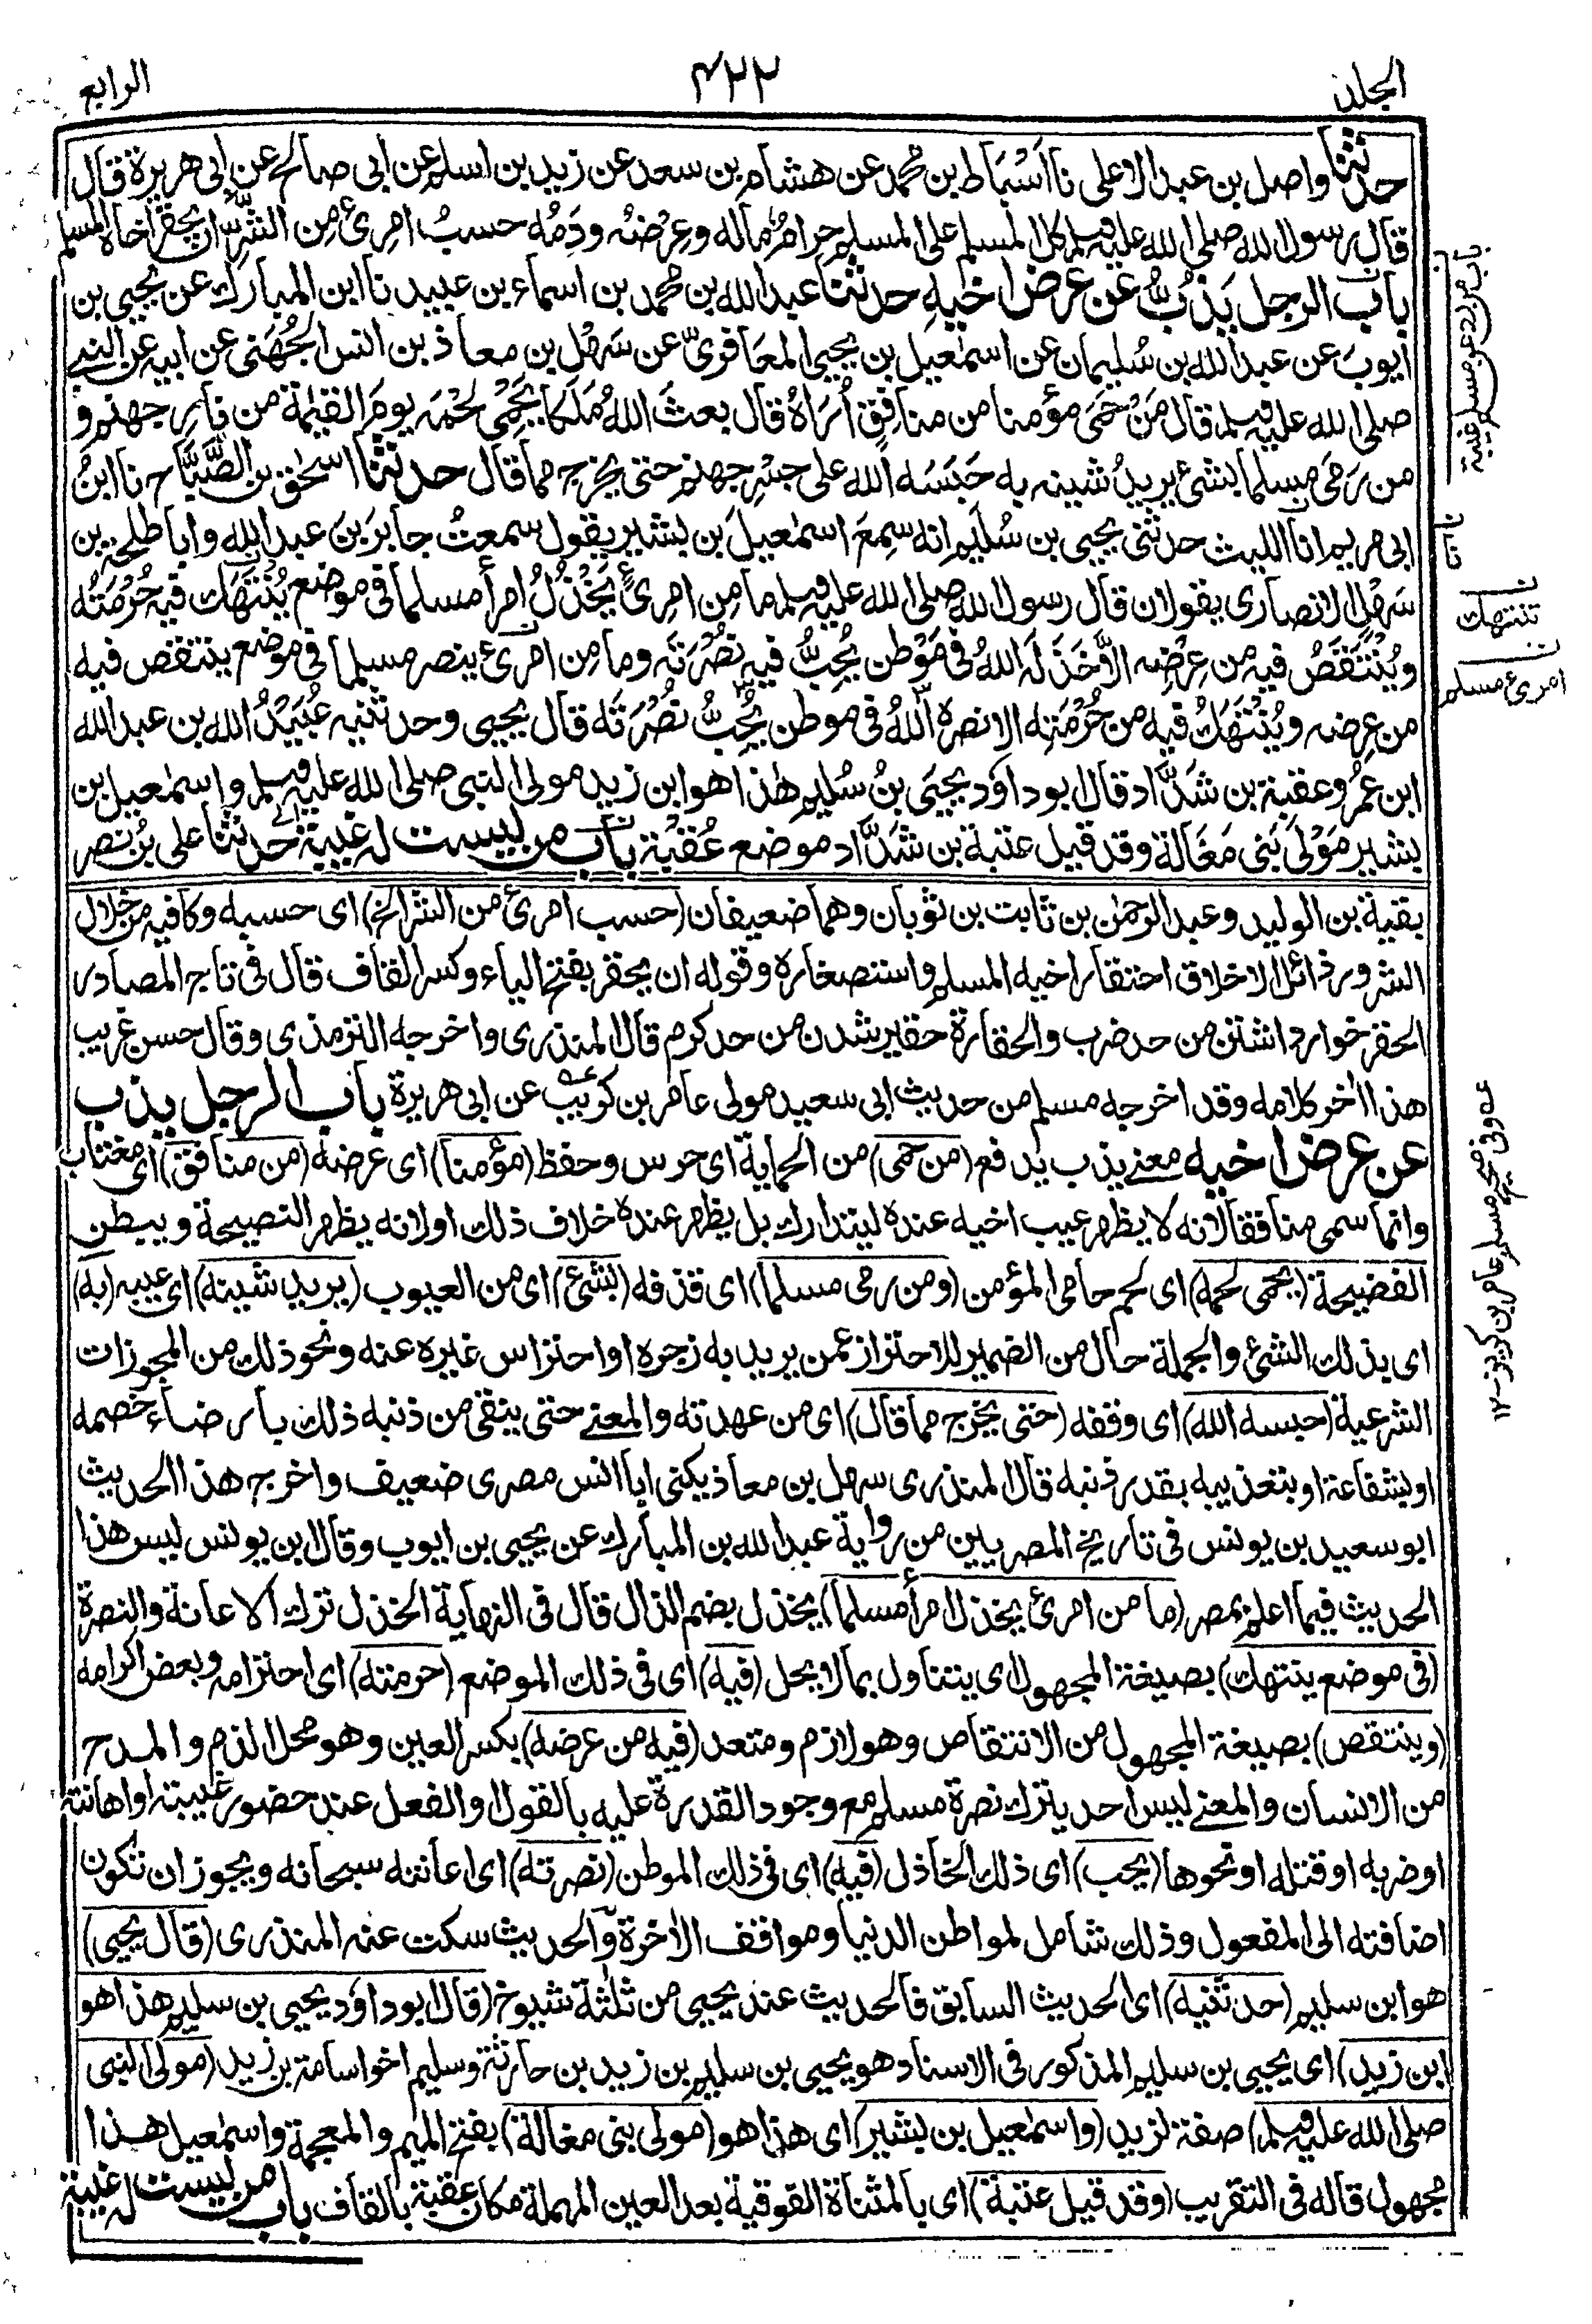 الجلد
٤٢٢
الرابع
حدثنا واصل بن عبد الاعلى نا اَسْبَاط بن محمد عن هشام بن سعد عن زيد بن اسلم عن ابى صالح عن ابى هريرة قال
قال رسول الله صلى الله عليه وسلم كل المسلم على المسلم حرامٌ ماله وعِرْضُه ودَمُه حسبُ امرِئٍ مِن الشرِّ ان يحقِرَ اخاه المسلم
باب الرجل يَذُبُّ عن عرض اخيه حدثنا عبد الله بن محمد بن اسماء بن عبيد نا ابن المبارك عن يحيى بن
ايوبَ عن عبد الله بن سُليمان عن اسمٰعيل بن يحيى المعَافرىّ عن سَهْل بن معاذ بن انس الجُهَنى عن ابيه عن النبى
صلى الله عليه وسلم قال مَنْ حَمَى مؤمنا من منافِقٍ اُرَاهُ قال بعثَ اللهُ مَلَكا يَحْمِىْ لحْمَه يومَ القيٰمة من نارِ جهنم و
من رَمَى مسلما بشئ يريدُ شينه به حَبَسَه الله على جِسْرِ جهنم حتى يخرج مما قال حدثنا اسحٰق بن الصَّبَّاح نا ابنُ
ابى مريم انا الليث حدثنى يحيى بن سُلَيم انه سمِعَ اسمٰعيلَ بن بشير يقول سمعتُ جابرَ بنَ عبد الله وابا طلحة بن
سَهْلٍ الانصارى يقولان قال رسول الله صلى الله عليه وسلم ما مِن امرِئٍ يَخْذُلُ امرأً مسلما فى موضع يُنْتَهَك فيه حُرْمَتُه
ويُنْتَقَصُ فيه من عِرْضِه الّا خَذَلَه اللهُ فى مَوْطن يُحِبُّ فيه نُصْرَتَه وما مِن امرئ ينصر مسلما فى موضع ينتقص فيه
من عِرضه ويُنْتَهَكُ فيه من حُرْمَتِه الا نصره اللهُ فى موطن يُحِبُّ نُصْرَتَه قال يحيى وحدثنيه عُبَيْدُ الله بن عبد الله
ابن عمرَ وعقبة بن شَدَّاد قال ابو داؤد يحيَى بنُ سُليم هٰذا هو ابن زيد مولى النبى صلى الله عليه وسلم واسمٰعيل بن
بشير مَوْلَى بَنى مَغَالة وقد قيل عتبة بن شَدَّاد موضع عُقْبَة باب من ليست له غيبة حدثنا على بن نصر
باب من رد عن مسلم غيبة
نا
تنتهك
امرئ مسلم
بقية بن الوليد وعبد الرحمٰن بن ثابت بن ثوبان وهما ضعيفان (حسب امرئ من الشر الخ) اى حسبه وكافيه من خلال
الشر ورذائل الاخلاق احتقار اخيه المسلم واستصغاره وقوله ان يحقر بفتح الياء وكسر القاف قال فى تاج المصادر
الحقر خوار داشتن من حد ضرب والحقارة حقير شدن من حد كرم قال المنذرى واخرجه الترمذى وقال حسن غريب
هذا اٰخر كلامه وقد اخرجه مسلم من حديث ابى سعيد مولى عامر بن كريب عن ابى هريرة باب الرجل يذب
عن عرض اخيه معنى يذب يدفع (من حمى) من الحماية اى حرس وحفظ (مؤمنا) اى عرضه (من منافق) اى مغتاب
وانما سمى منافقا لانه لا يظهر عيب اخيه عنده ليتدارك بل يظهر عنده خلاف ذلك اولانه يظهر النصيحة ويبطن
الفضيحة (يحمى لحمه) اى لحم حامى المؤمن (ومن رمى مسلما) اى قذفه (بشئ) اى من العيوب (يريد شينه) اى عيبه (به)
اى بذلك الشئ والجملة حال من الضمير للاحتراز عمن يريد به زجره او احتراس غيره عنه ونحو ذلك من المجوزات
الشرعية (حبسه الله) اى وقفه (حتى يخرج مما قال) اى من عهدته والمعنى حتى ينقى من ذنبه ذلك بارضاء خصمه
او بشفاعة او بتعذيبه بقدر ذنبه قال المنذرى سهل بن معاذ يكنى ابا انس مصرى ضعيف واخرج هذا الحديث
ابو سعيد بن يونس فى تاريخ المصريين من رواية عبد الله بن المبارك عن يحيى بن ايوب وقال ابن يونس ليس هذا
الحديث فيما اعلم بمصر (ما من امرئ يخذل امرأ مسلما) يخذل بضم الذال قال فى النهاية الخذل ترك الاعانة والنصرة
(فى موضع ينتهك) بصيغة المجهول اى يتناول بما لا يحل (فيه) اى فى ذلك الموضع (حرمته) اى احترامه وبعض اكرامه
(وينتقص) بصيغة المجهول من الانتقاص وهو لازم ومتعد (فيه من عرضه) بكسر العين وهو محل الذم والمدح
من الانسان والمعنى ليس احد يترك نصرة مسلم مع وجود القدرة عليه بالقول او الفعل عند حضور غيبته او اهانته
او ضربه او قتله او نحوها (يحب) اى ذلك الخاذل (فيه) اى فى ذلك الموطن (نصرته) اى اعانته سبحانه ويجوز ان تكون
اضافته الى المفعول وذلك شامل لمواطن الدنيا ومواقف الاٰخرة والحديث سكت عنه المنذرى (قال يحيى)
هو ابن سليم (حدثنيه) اى الحديث السابق فالحديث عند يحيى من ثلثة شيوخ (قال ابو داؤد يحيى بن سليم هذا هو
ابن زيد) اى يحيى بن سليم المذكور فى الاسناد هو يحيى بن سليم بن زيد بن حارثة وسليم اخو اسامة بن زيد (مولى النبى
صلى الله عليه وسلم) صفة لزيد (واسمٰعيل بن بشير) اى هذا هو (مولى بنى مغالة) بفتح الميم والمعجمة واسمٰعيل هذا
مجهول قاله فى التقريب (وقد قيل عتبة) اى بالمثناة الفوقية بعد العين المهملة مكان عقبة بالقاف باب من ليست له غيبة
عه وفى صحيح مسلم عامر بن كريز ١٢